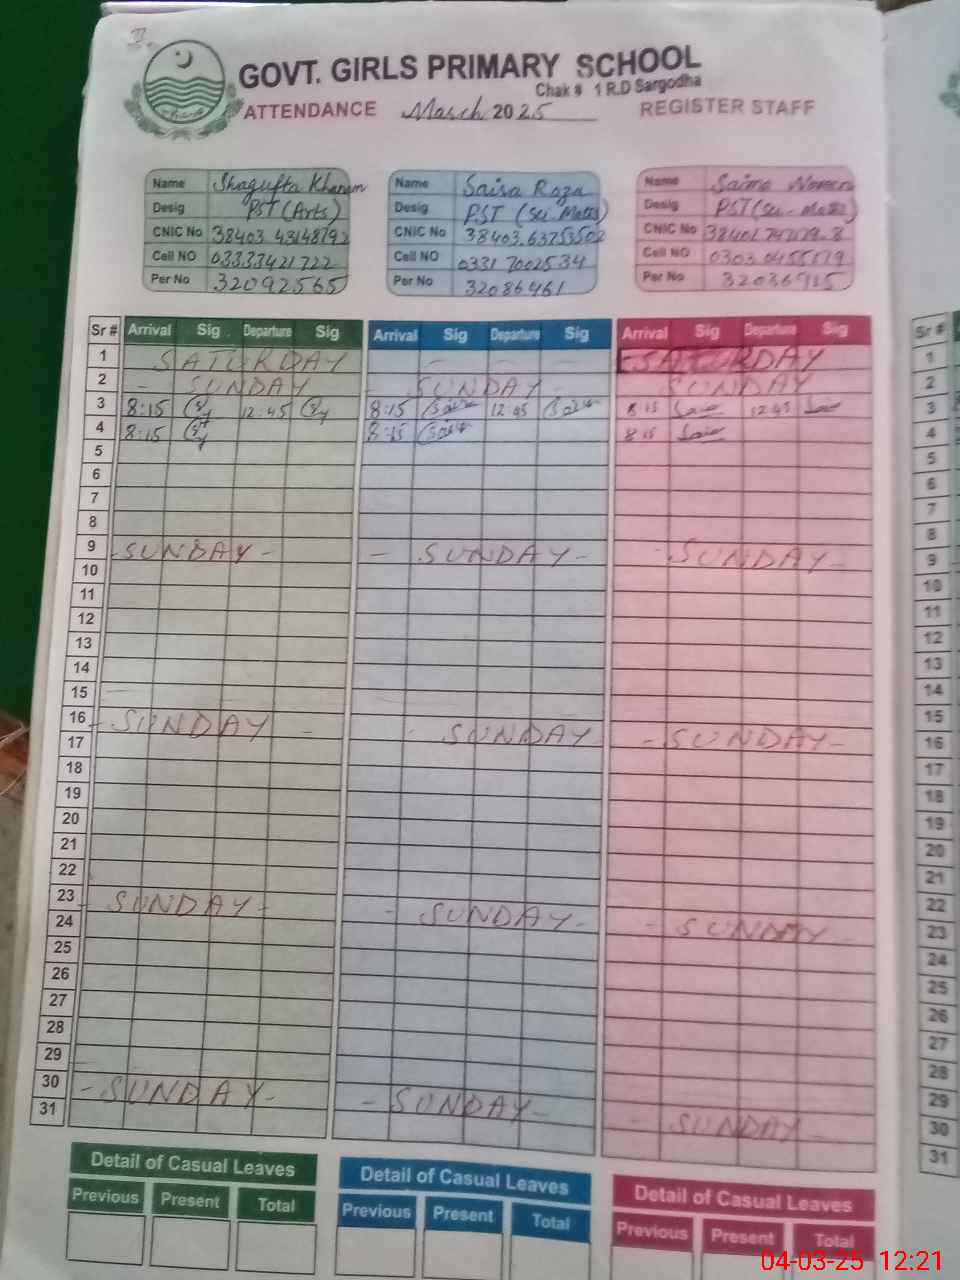 GOVT. GIRLS PRIMARY SCHOOL
Chak # 1 R.D Sargodha
ATTENDANCE March 2025 REGISTER STAFF
Name Shagufta Khanam
Desig PST (Arts)
CNIC No 38403 43148792
Cell NO 03333421722
Per No 32092565
Name Saisa Roza
Desig PST (Sci-Maths)
CNIC No 38403.63753502
Cell NO 0331 7002534
Per No 32086461
Name Saima
Desig PST (Sci-Maths)
CNIC No
Cell NO
Per No 32036915
Sr # Arrival Sig Departure Sig Arrival Sig Departure Sig Arrival Sig Departure Sig Sr #
1 SATURDAY - - - - SATURDAY 1
2 - SUNDAY - SUNDAY - SUNDAY 2
3 8:15 12:45 8:15 12:45 8:15 12:45 3
4 8:15 8:15 8:15 4
5 5
6 6
7 7
8 8
9 -SUNDAY- - SUNDAY- - SUNDAY- 9
10 10
11 11
12 12
13 13
14 14
15 15
16 -SUNDAY - - SUNDAY -SUNDAY- 16
17 17
18 18
19 19
20 20
21 21
22 22
23 SUNDAY- - SUNDAY- - SUNDAY 23
24 24
25 25
26 26
27 27
28 28
29 29
30 -SUNDAY- - SUNDAY- - SUNDAY- 30
31 31
Detail of Casual Leaves Detail of Casual Leaves Detail of Casual Leaves
Previous Present Total Previous Present Total Previous Present Total
04-03-25 12:21